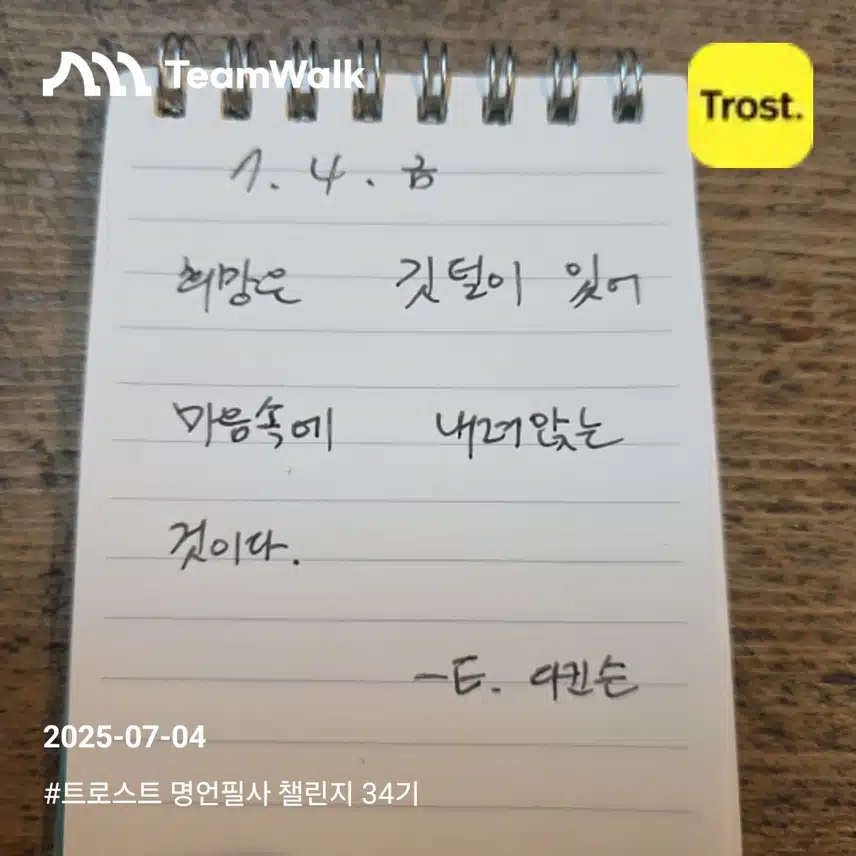 TeamWalk
Trost.
7. 4. 금
희망은 깃털이 있어
마음속에 내려앉는
것이다.
-E. 디킨슨
2025-07-04
#트로스트 명언필사 챌린지 34기